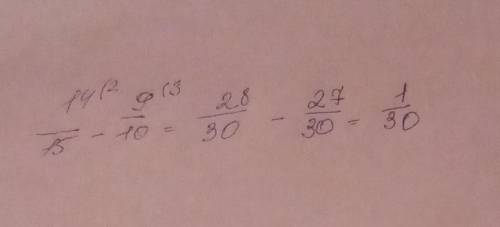 14(2/15 - 9(3/10 = 28/30 - 27/30 = 1/30